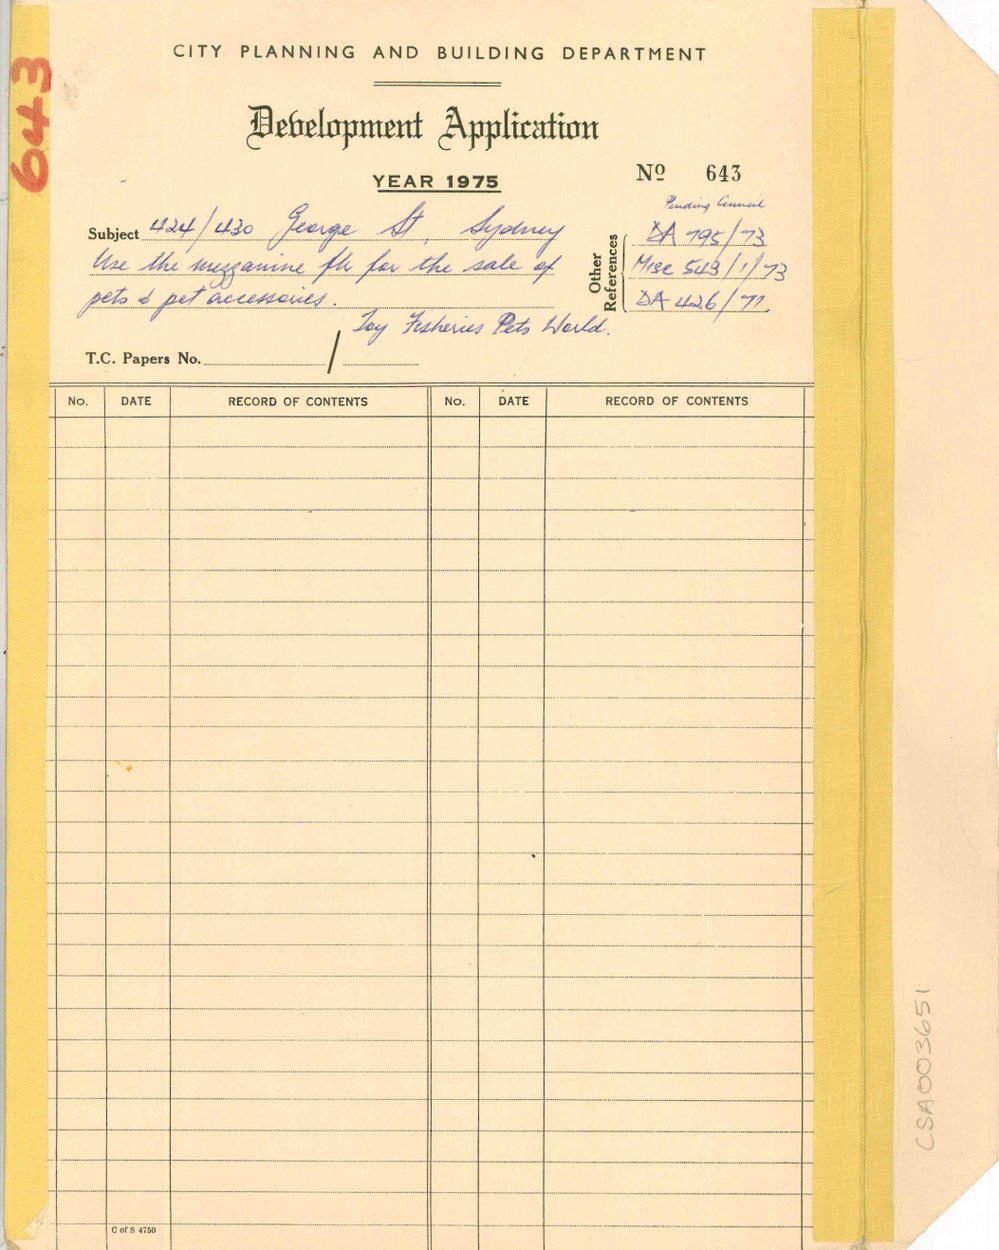 643
CITY PLANNING AND BUILDING DEPARTMENT
Development Application
YEAR 1975
Nº 643
Pending Council
Subject 424/430 George St, Sydney
Use the mezzanine flr for the sale of
pets & pet accessories.
Toy Fisheries Pets World.
Other References
DA 795/73
Misc 543/1/73
DA 426/71
T.C. Papers No. /
No. DATE RECORD OF CONTENTS No. DATE RECORD OF CONTENTS
C of S 4750
CSA003651